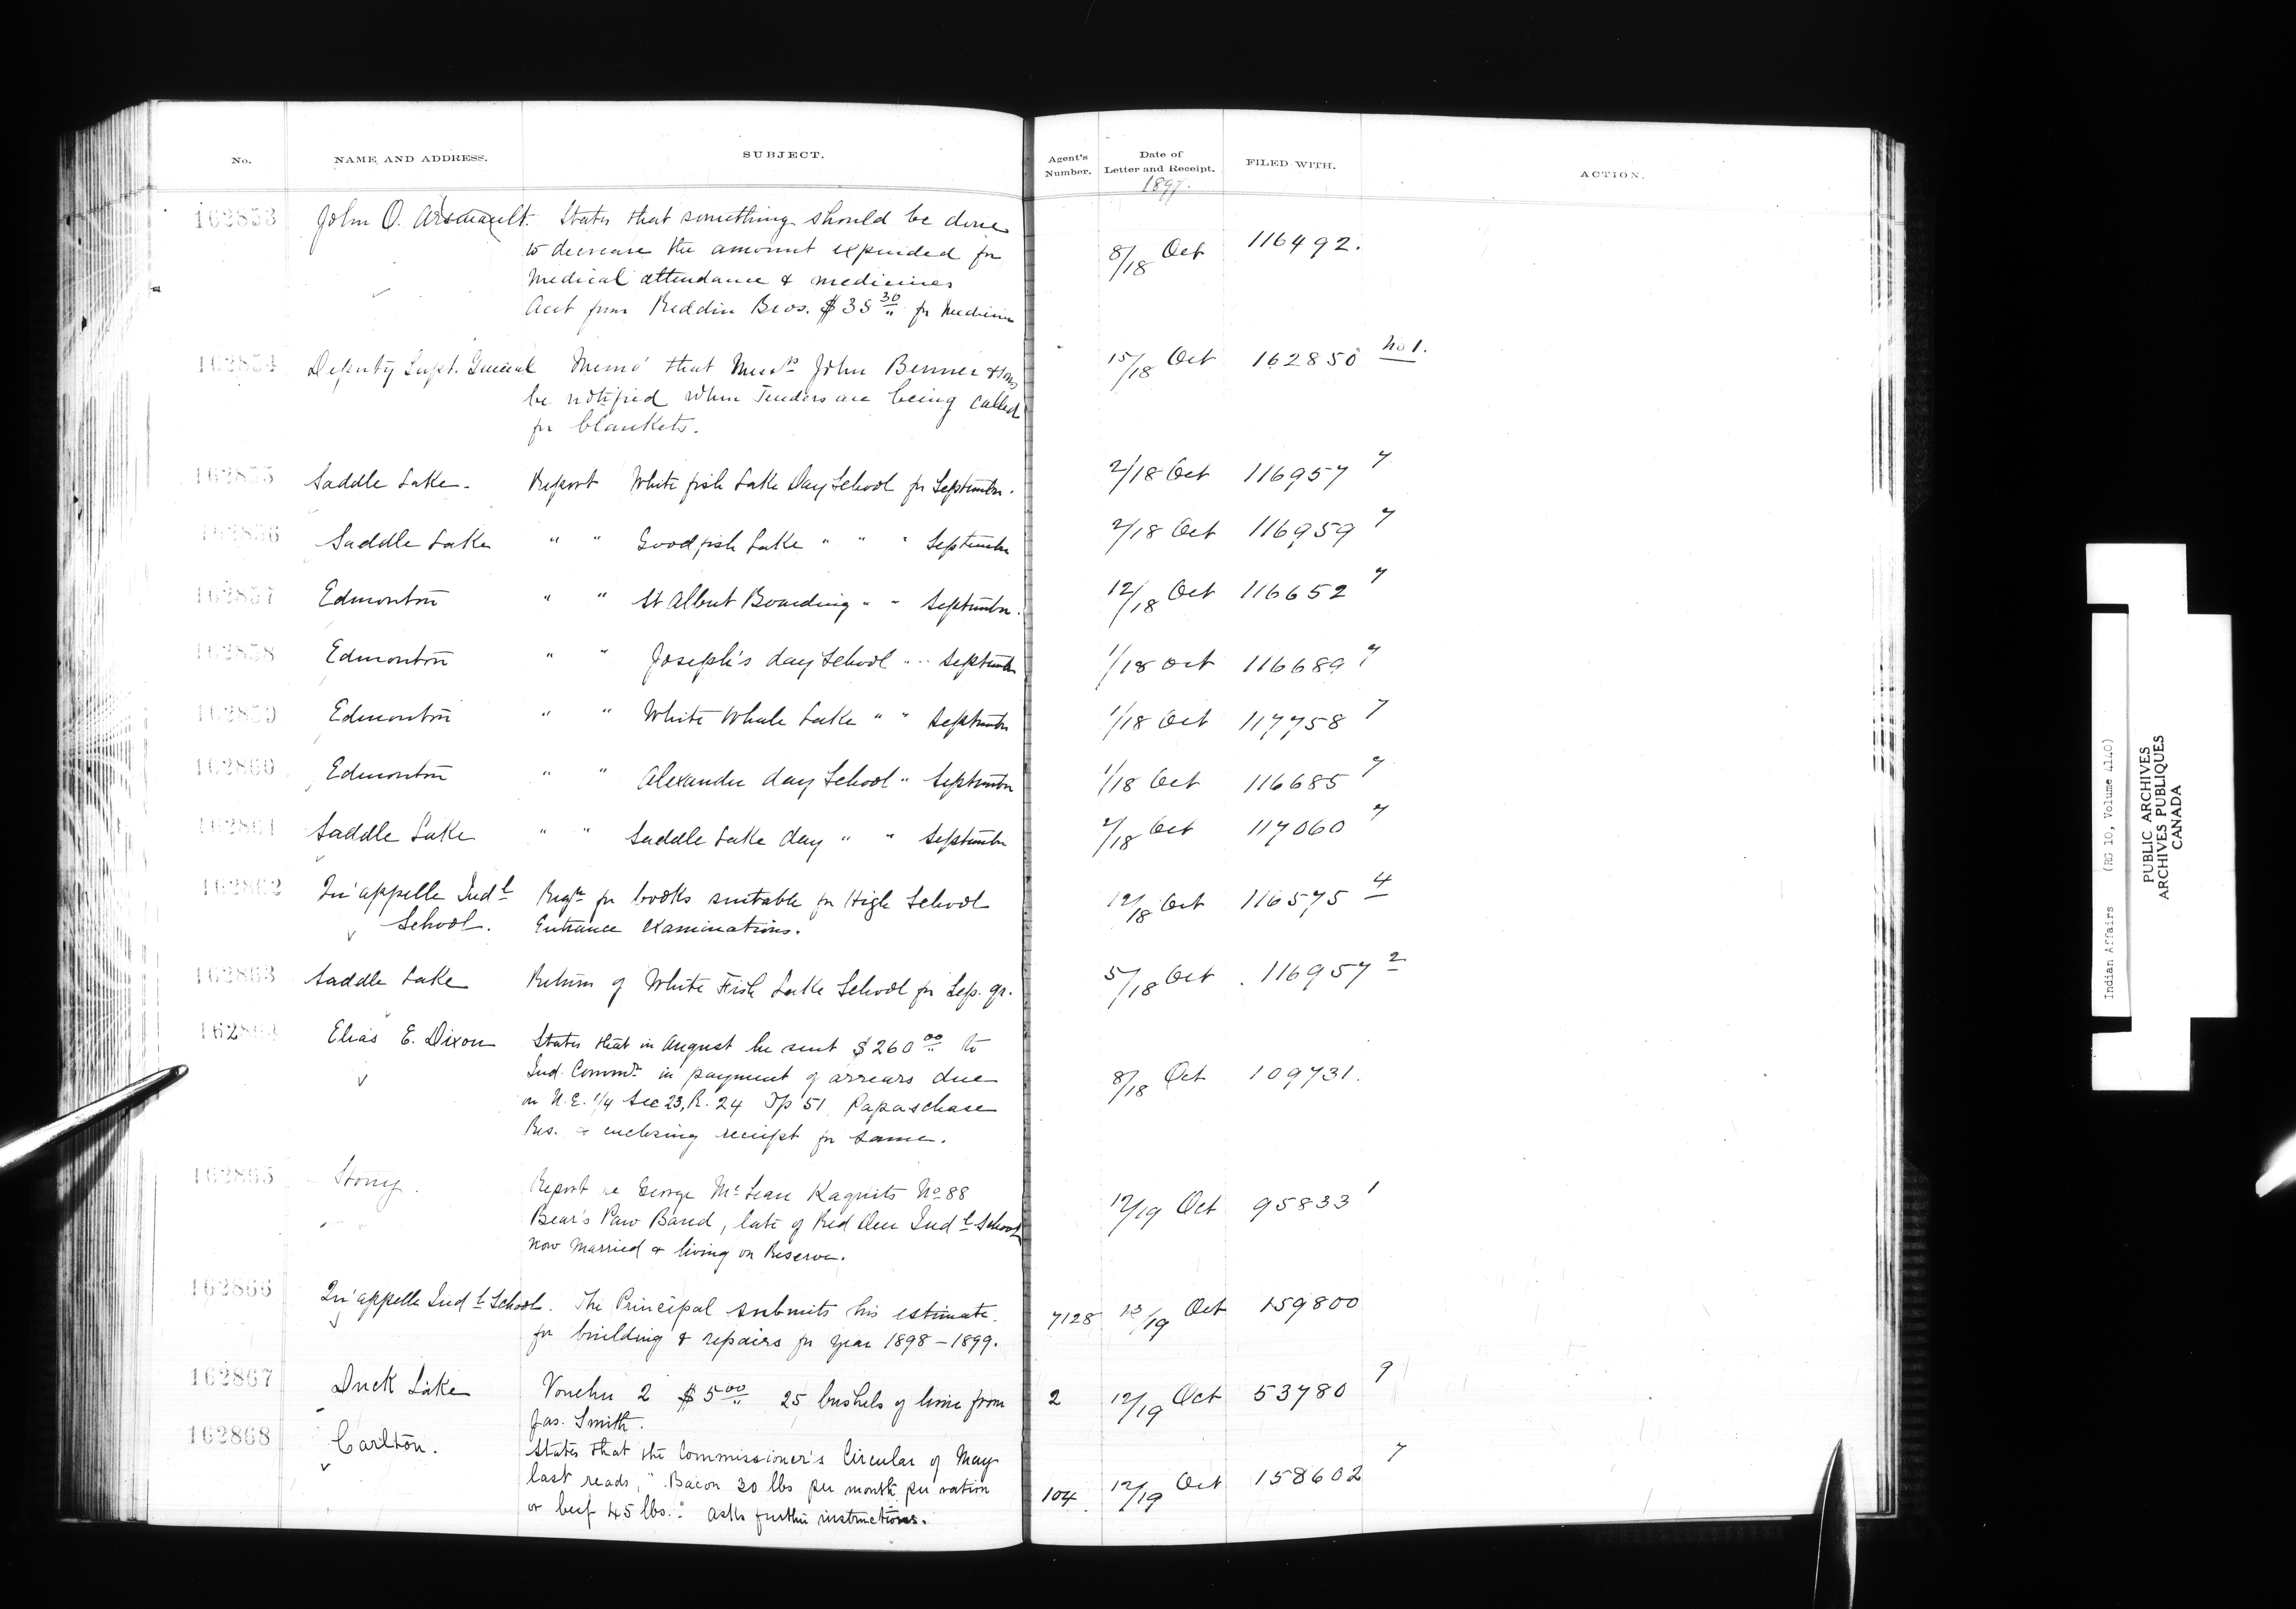 No. NAME AND ADDRESS. SUBJECT. Agent's Number. Date of Letter and Receipt. FILED WITH. ACTION.
1897.
162853 John O. Arsenault. States that something should be done 8/18 Oct 116492.
to decrease the amount expended for
Medical attendance & medicines
Acct from Reddin Bros. $35 30 for Medicine
162854 Deputy Supt. General Memo that Messrs John Benner & Sons 15/18 Oct 162850 No 1.
be notified when Tenders are being called
for blankets.
162855 Saddle Lake. Report White fish Lake Day School for September. 2/18 Oct 116957 7
162856 Saddle Lake " " Goodfish Lake " " " September 2/18 Oct 116959 7
162857 Edmonton " " St Albert Boarding " " September. 12/18 Oct 116652 7
162858 Edmonton " " Joseph's day School " " September 1/18 Oct 116689 7
162859 Edmonton " " White Whale Lake " " September 1/18 Oct 117758 7
162860 Edmonton " " Alexander day School " September 1/18 Oct 116685 7
162861 Saddle Lake " " Saddle Lake day " " September 2/18 Oct 117060 7
162862 Qu'appelle Indl Reqn for books suitable for High School 12/18 Oct 116575 4
School. Entrance examinations.
162863 Saddle Lake Return of White Fish Lake School for Sep. qr. 5/18 Oct 116957 2
162864 Elias E. Dixon States that in August he sent $260 00 to
Ind. Commr in payment of arrears due 8/18 Oct 109731.
on N.E. 1/4 Sec 23, R. 24 Tp 51 Papaschase
Res. & enclosing receipt for same.
162865 Stony. Report re George McLean Kagnits No 88 12/19 Oct 95833 1
Bear's Paw Band, late of Red Deer Indl School
now married & living on Reserve.
162866 Qu'appelle Indl School. The Principal submits his estimate 7128 13/19 Oct 159800
for building & repairs for year 1898-1899.
162867 Duck Lake Voucher 2 $5 00 25 bushels of lime from 2 12/19 Oct 53780 9
Jas. Smith.
162868 Carlton. States that the Commissioner's Circular of May
last reads, "Bacon 30 lbs per month per ration 104 12/19 Oct 158602 7
or beef 45 lbs." Asks further instructions.
Indian Affairs (RG 10, Volume 4140)
PUBLIC ARCHIVES
ARCHIVES PUBLIQUES
CANADA